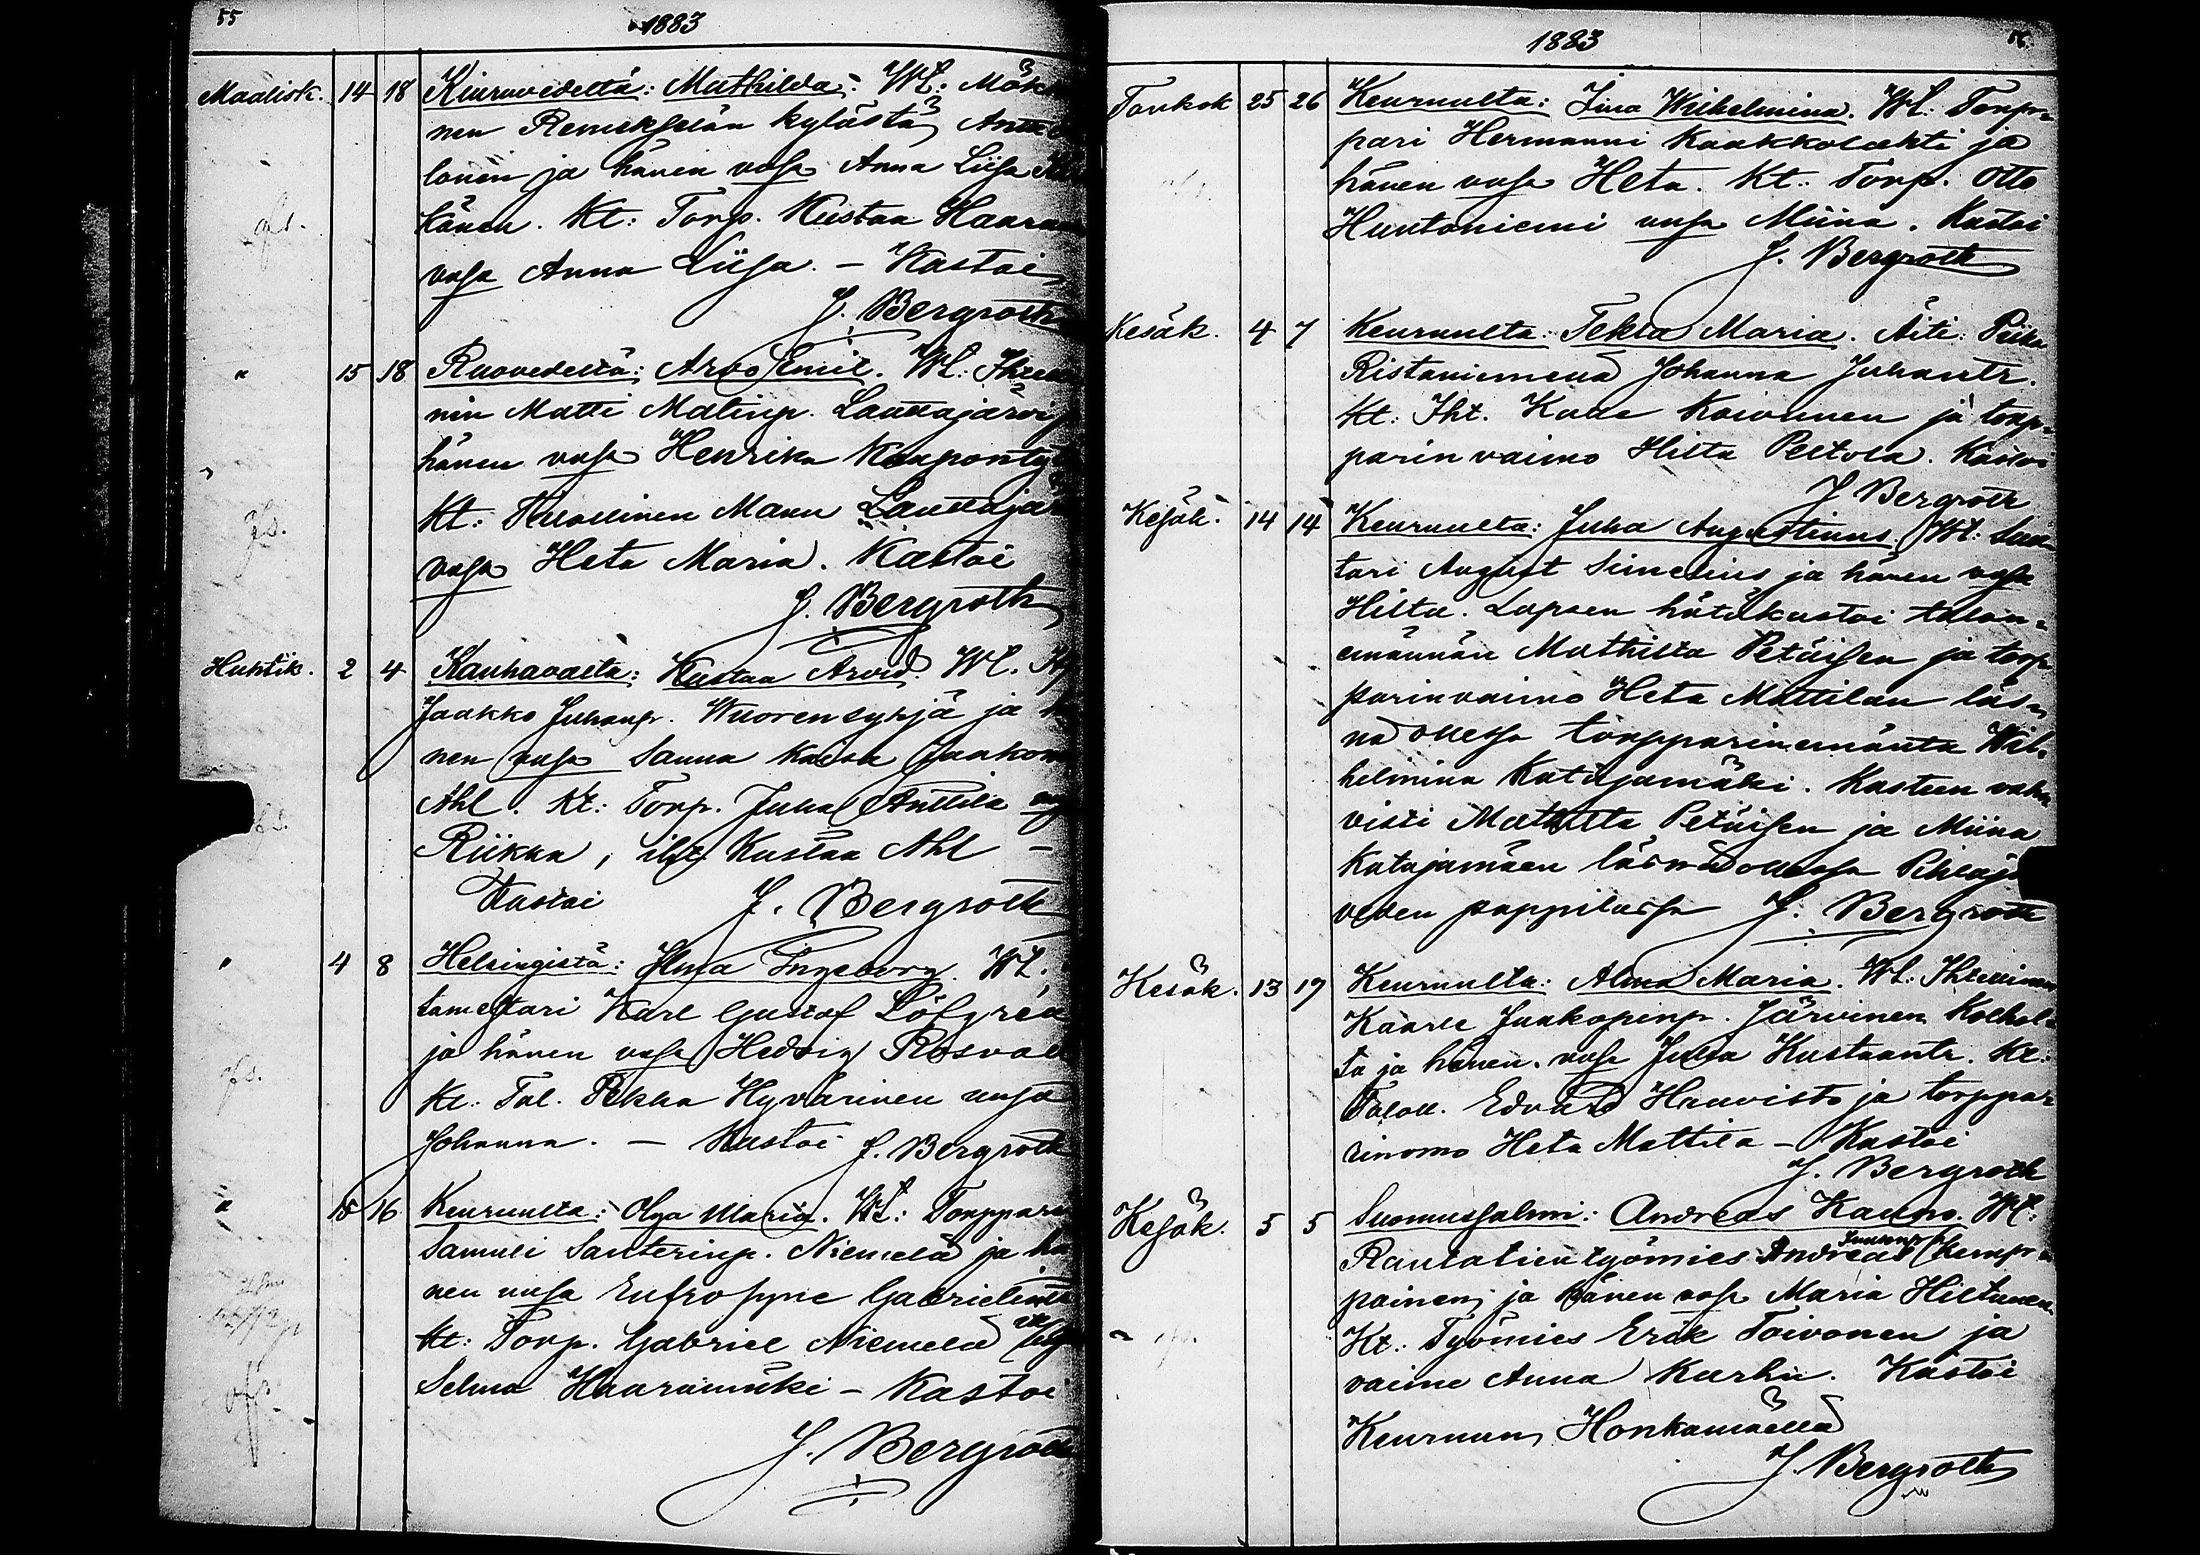 55
1883
Maalisk. 14 18 Kiuruvedeltä: Mathilda. Wt: Mök
nen Remeksjelän kylästä Antti
lonin ja hänen vsa Anna Liisa
känen. Kt: Torp. Kustaa Haara
vsa Anna Liisa. — Kastoi
J. Bergroth
" 15 18 Ruovedeltä: Arvo Emil. Wt:
nin Matti Matinp. Lauttajärvi
hänen vsa Henrika Kaapontyt
Kt: Manu Lauttajär
vsa Heta Maria. Kastoi
J. Bergroth
Huhtik. 2 4 Kauhavalta: Kustaa Arvid. Wt.
Jaakko Juhanp. Wuorensyrjä ja h
nen vsa Sanna Kaisa Jaakon
Ahl. Kt: Torp. Juha Anttila
Riikka, Kustaa Ahl —
Kastoi J. Bergroth
" 4 8 Helsingistä: Ilma Ingeborg. Wt.
Karl Gustaf Löfgren
ja hänen vsa Hedvig Rosval
Kt: Tal. Pekka Hyvärinen vsa
Johanna. — Kastoi J. Bergroth
" 15 16 Keuruulta: Olga Maria. Wt: Torppari
Samuli Santerinp. Niemelä ja hä
nen vsa Eufrosyne Gabrielint
Kt: Torp. Gabriel Niemelä
Selma Haaramäki — Kastoi
J. Bergroth
1883
56
Toukok 25 26 Keuruulta: Iina Wilhelmina. Wt: Torp=
pari Hermanni Kaakkolahti ja
hänen vsa Heta. Kt: Torp. Otto
Huntoniemi vsa Miina. Kastoi
J. Bergroth
Kesäk. 4 7 Keuruulta: Tekla Maria. Äiti: Piika
Ristaniemeltä Johanna Juhantr.
Kt: Iht. Koivunen ja torp=
parin vaimo Hilta Peltola. Kastoi
J Bergroth
Kesäk. 14 14 Keuruulta: Juha Augustinus Wt: Suu
tari August Simelius ja hänen vsa
Hilta. Lapsen hätäkastoi talon=
emännän Mathilta Petäisen ja torp=
parinvaimo Heta Mattilan läs=
nä ollessa torpparinemäntä Wil=
helmina Katajamäki. Kasteen vah
visti Mathilta Petäisen ja Miina
Katajamäen läsnä ollessa Pihlaja
veden pappilassa J. Bergroth
Kesäk. 13 19 Keuruulta: Alma Maria. Wt: Itsellinen
Kaarle Jaakopinp. Järvinen Kolhol=
ta ja hänen vsa Julia Kustaantr. Kt:
Taloll. Edvard Haavisto ja torppa=
rinomo Heta Mattila — Kastoi
J. Bergroth
Kesäk. 5 5 Suomussalmi: Andreas Kauno. Wt:
Rautatien työmies Andreas Kemp=
painen ja hänen vsa Maria Hiltunen.
Kt: Työmies Erik Toivonen ja
vaimo Anna Karhu. Kastoi
Keuruun Honkamäellä
J. Bergroth